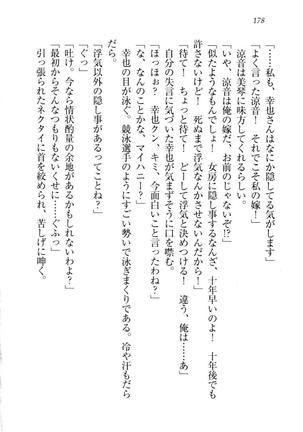 178
「……私も、幸也さんはなにか隠してる気がします」
「よく言った涼音！　それでこそ私の嫁！」
　涼音は美琴に味方してくれるらしい。
「いや、涼音は俺の嫁だ、お前のじゃない！」
「似たようなもんでしょ！　女房に隠し事するなんざ、十年早いのよ！　十年後でも
許さないけど！　死ぬまで浮気なんかさせないんだから！」
「待て！　ちょっと待て！　どーして浮気と決めつける！　違う、俺は……あ」
　自分の失言に気づいた幸也が気まずそうに口を噤む。
「ほっほぉ？　幸也クン、キミ、今面白いこと言ったわね？」
「な、なんのことかな、マイハニー？」
　幸也の目が泳ぐ。競泳選手のようにすごい勢いで泳ぎまくりである。冷や汗もだら
だら。
「浮気以外の隠し事があるってことね？」
「くっ」
「吐け。今なら情状酌量の余地があるかもしれないわよ？」
「最初からそんなつもりもないくせに……ぐふっ」
　引っ張られたネクタイに首を絞められ、苦しげに呻く。